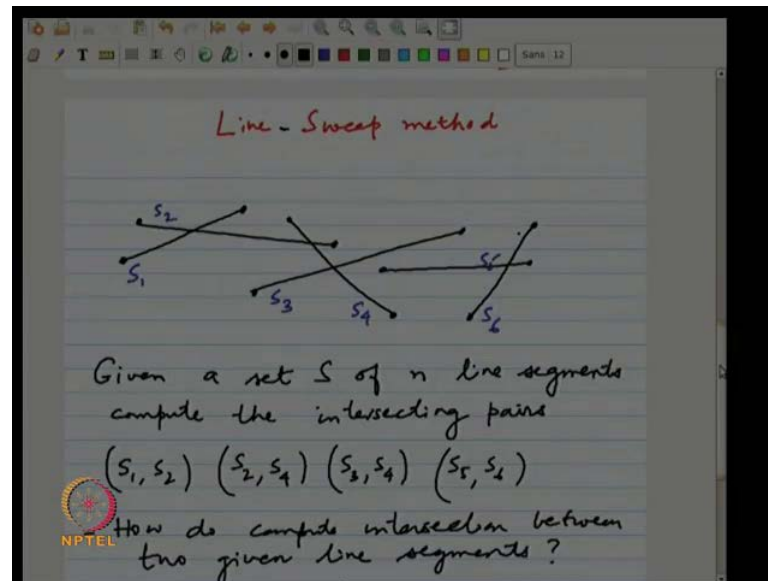 Sans 12
Line - Sweep method
S2
S1
S3
S4
S5
S6
Given a set S of n line segments
compute the intersecting pairs
(S1, S2) (S2, S4) (S3, S4) (S5, S6)
- How do compute intersection between
two given line segments ?
NPTEL